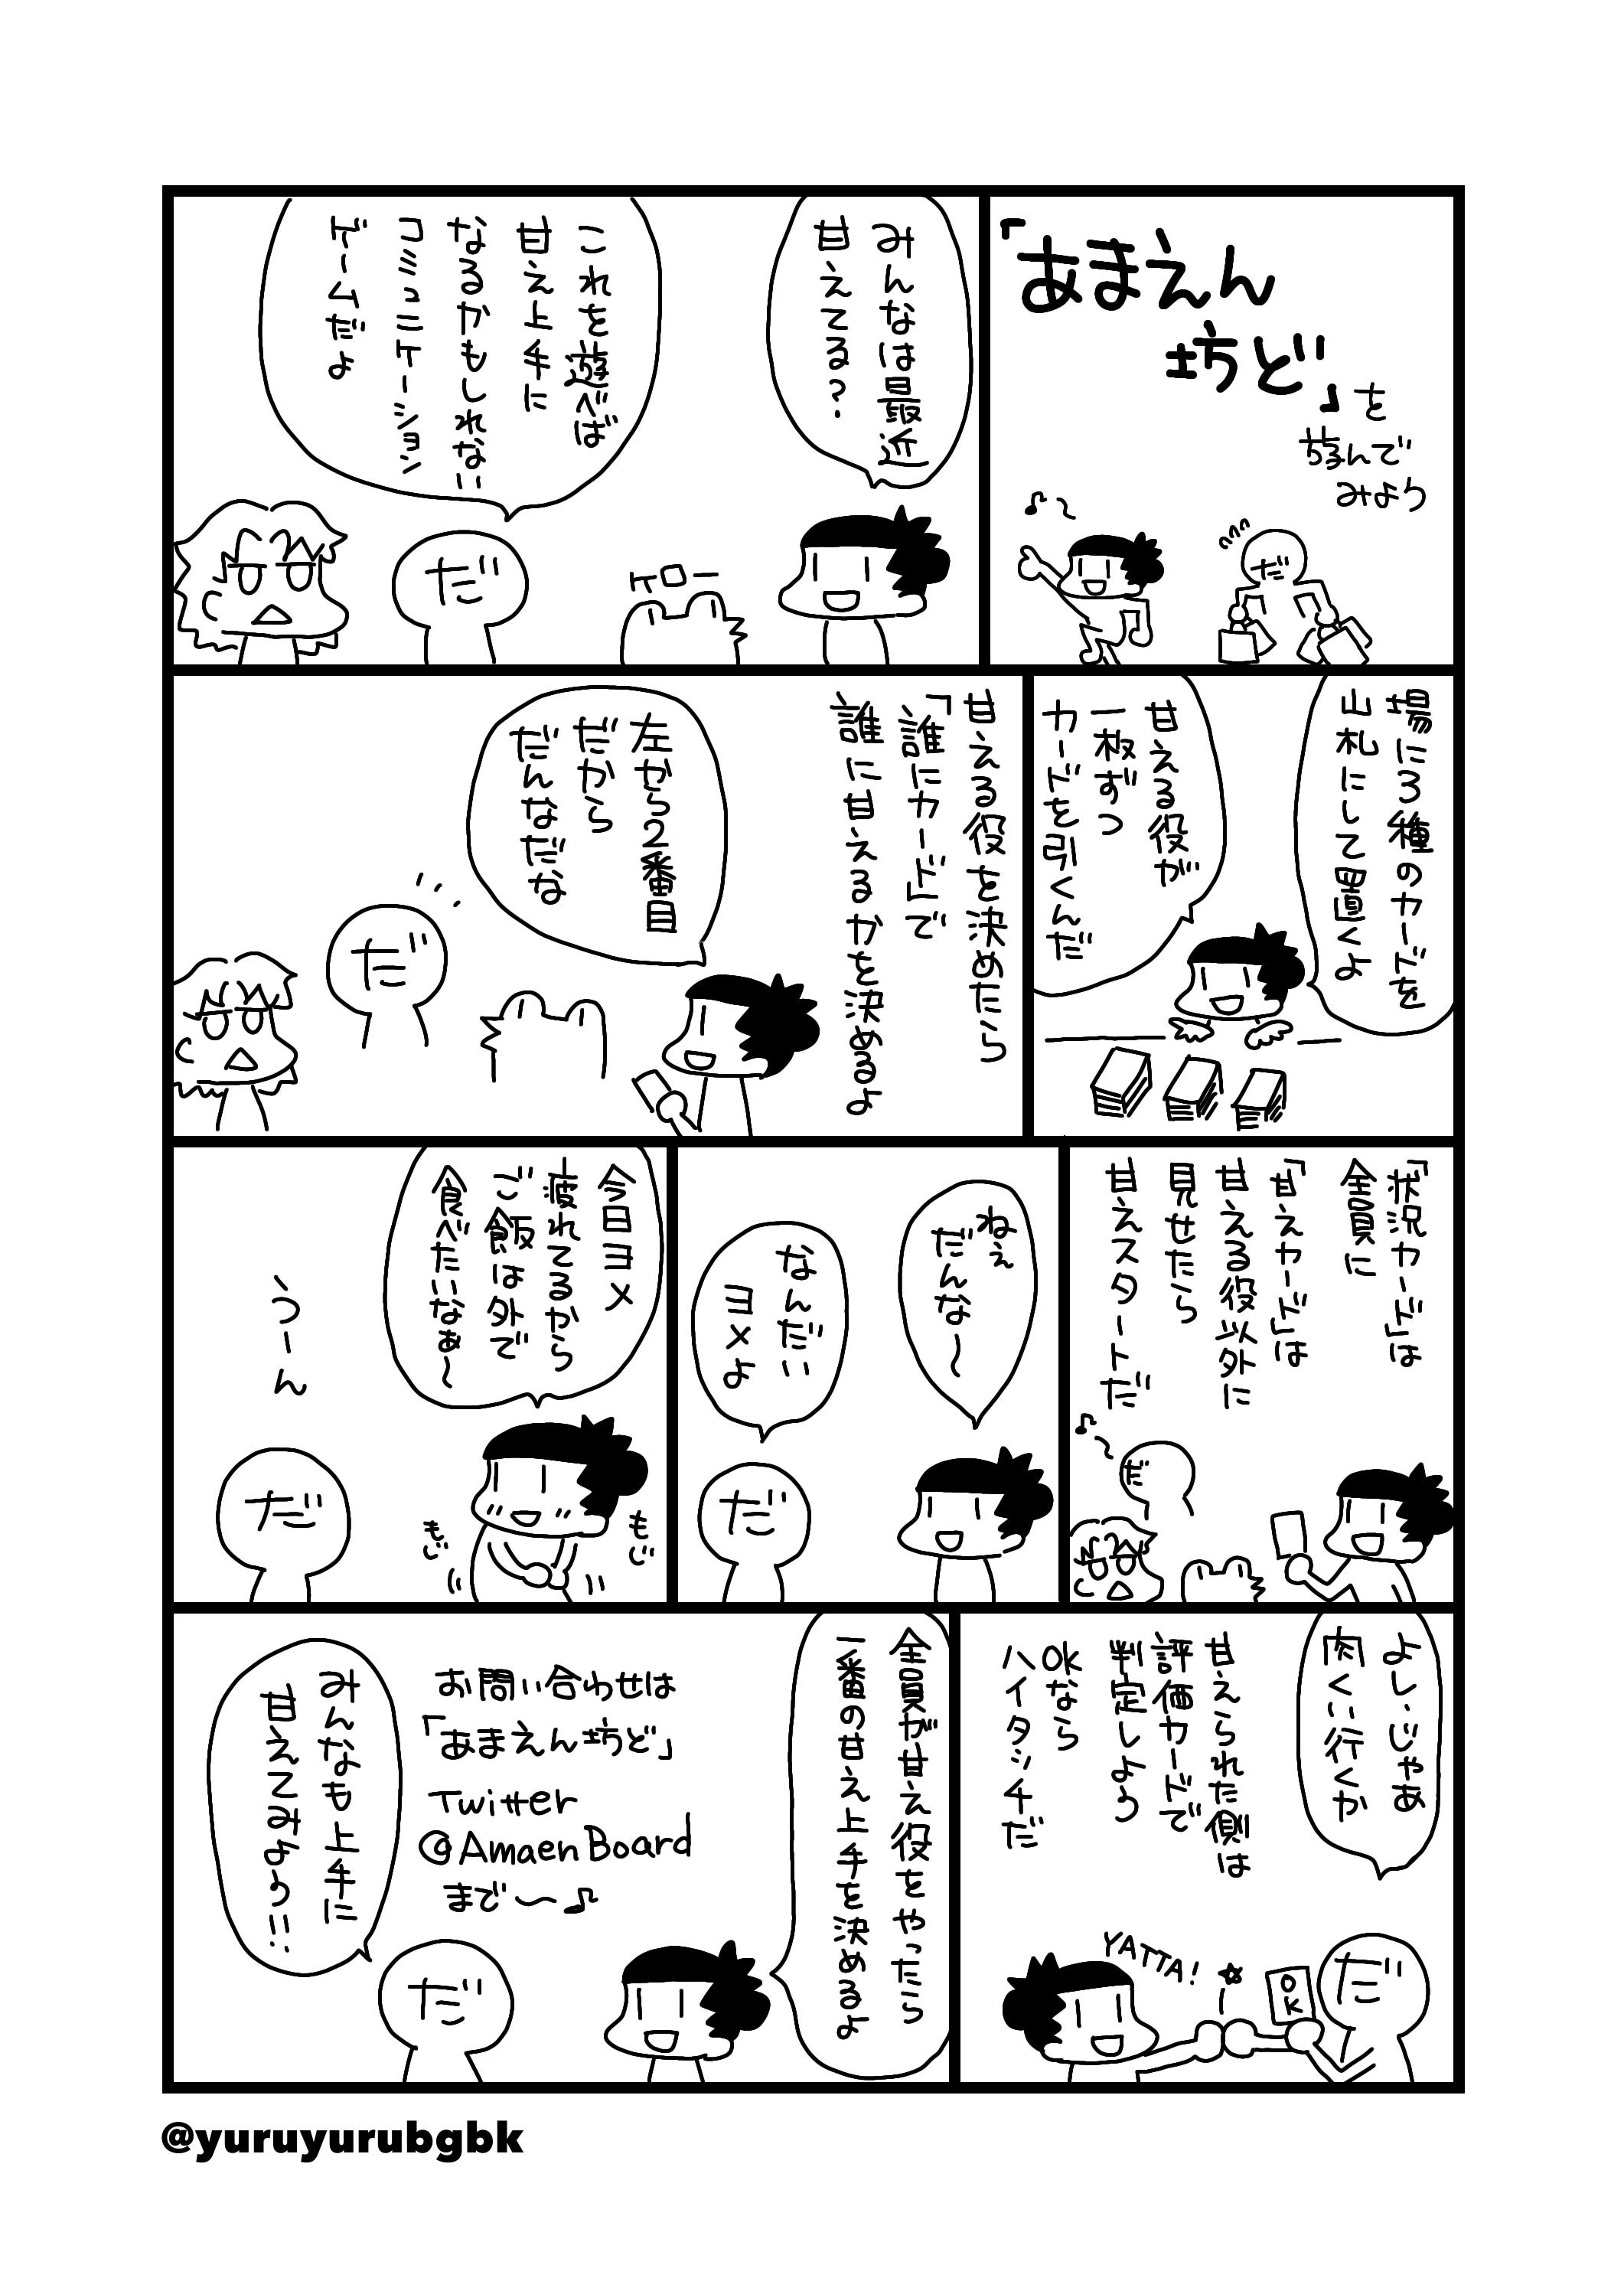 「あまえん
坊ど」を
遊んで
みよう
だ
みんなは最近
甘えてる？
これを遊べば
甘え上手に
なるかもしれない
コミュニケーション
ゲームだよ
ケロー
だ
場に3種のカードを
山札にして置くよ
甘える役が
一枚ずつ
カードを引くんだ
甘える役を決めたら
「誰にカード」で
誰に甘えるかを決めるよ
左から2番目
だから
だんなだな
だ
「状況カード」は
全員に
「甘えカード」は
甘える役以外に
見せたら
甘えスタートだ
だ
ねぇ
だんな〜
なんだい
ヨメよ
だ
今日ヨメ
疲れてるから
ご飯は外で
食べたいなぁ〜
うーん
もじ
もじ
だ
よしじゃあ
肉くい行くか
甘えられた側は
評価カードで
判定しよう
OKなら
ハイタッチだ
YATTA!
OK
だ
全員が甘え役をやったら
一番の甘え上手を決めるよ
お問い合わせは
「あまえん坊ど」
Twitter
@AmaenBoard
まで〜♪
みんなも上手に
甘えてみよう!!
だ
@yuruyurubgbk